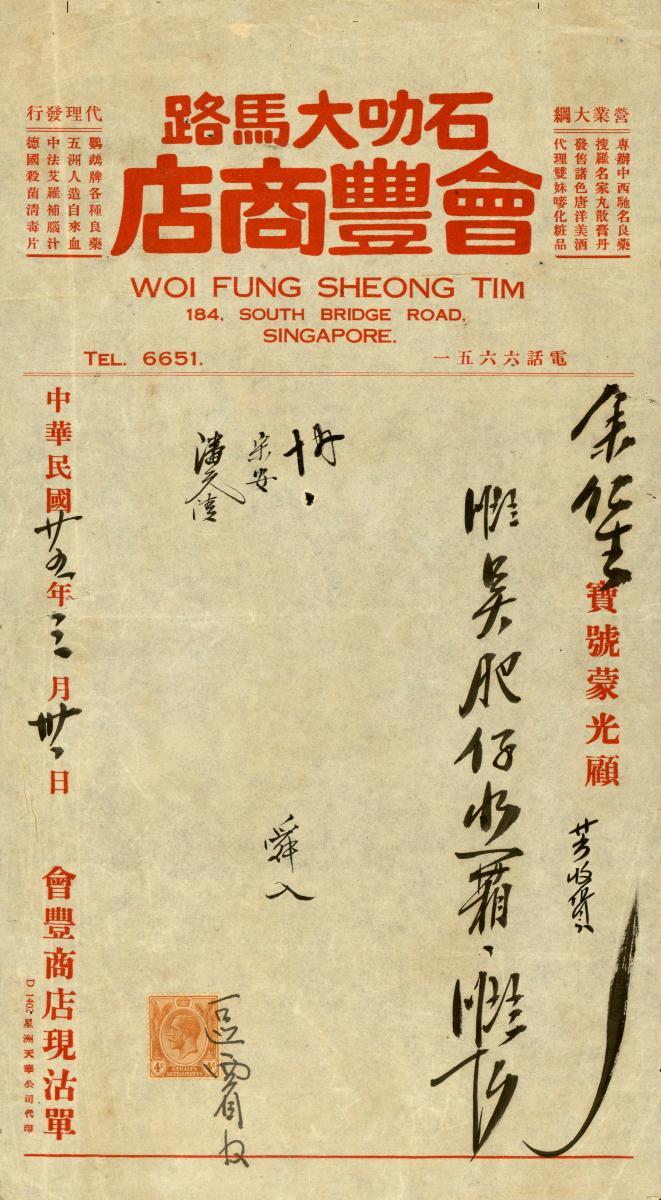 石叻大馬路
會豐商店
WOI FUNG SHEONG TIM
184, SOUTH BRIDGE ROAD,
SINGAPORE.
TEL. 6651.
電話六六五一
營業大綱
專辦中西馳名良藥
搜羅名家丸散膏丹
發售諸色唐洋美酒
代理雙妹嘜化粧品
代理發行
鸚鵡牌各種良藥
五洲人造自來血
中法艾羅補腦汁
德國殺菌清毒片
余仁生寶號蒙光顧
吳肥仔
舜入
中華民國廿五年三月卅一日
會豐商店現沽單
D 1402 星洲天華公司代印
4c
STRAITS
SETTLEMENTS